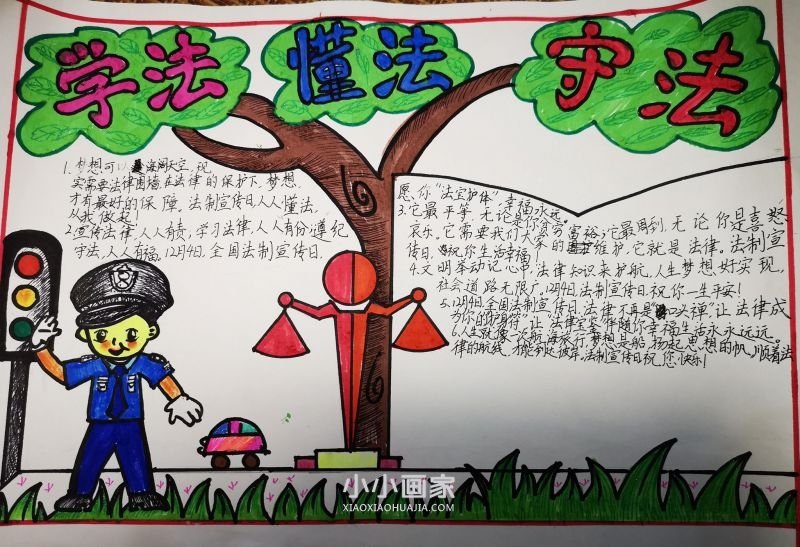 学法 懂法 守法
1. 梦想可以海阔天空,现
实需要法律围墙,在法律的保护下,梦想
才有最好的保障。法制宣传日,人人懂法,
从我做起!
2. 宣传法律,人人有责,学习法律,人人有份,遵纪
守法,人人有福。12月4日,全国法制宣传日,
愿你“法宝护体”,幸福永远。
3. 它最平等,无论是你贫穷富裕;它最周到,无论你是喜怒
哀乐。它需要我们大家的维护,它就是法律。法制宣
传日,祝你生活幸福!
4. 文明举动记心中,法律知识来护航,人生梦想好实现,
社会道路无限广,12月4日,法制宣传日,祝你一生平安!
5. 12月4日全国法制宣传日,法律不再是“口头禅”让法律成
为你的“护身符”让“法律宝宝”伴随你幸福生活永永远远。
6. 人生就像一次航海旅行,梦想是船,扬起思想的帆,顺着法
律的航线,才能到达彼岸,法制宣传日,祝您快乐!
小小画家
XIAOXIAOHUAJIA.COM